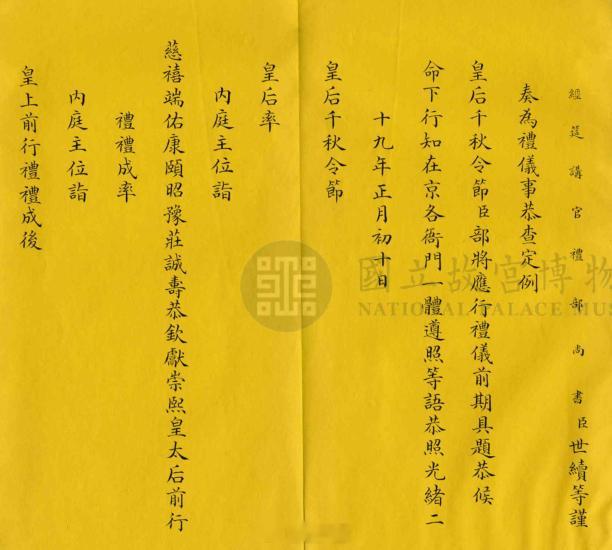 經筵講官禮部尚書臣世續等謹
奏為禮儀事恭查定例
皇后千秋令節臣部將應行禮儀前期具題恭候
命下行知在京各衙門一體遵照等語恭照光緒二
十九年正月初十日
皇后千秋令節
皇后率
內庭主位詣
慈禧端佑康頤昭豫莊誠壽恭欽獻崇熙皇太后前行
禮禮成率
內庭主位詣
皇上前行禮禮成後
國立故宮博物
NATIONAL PALACE MUS